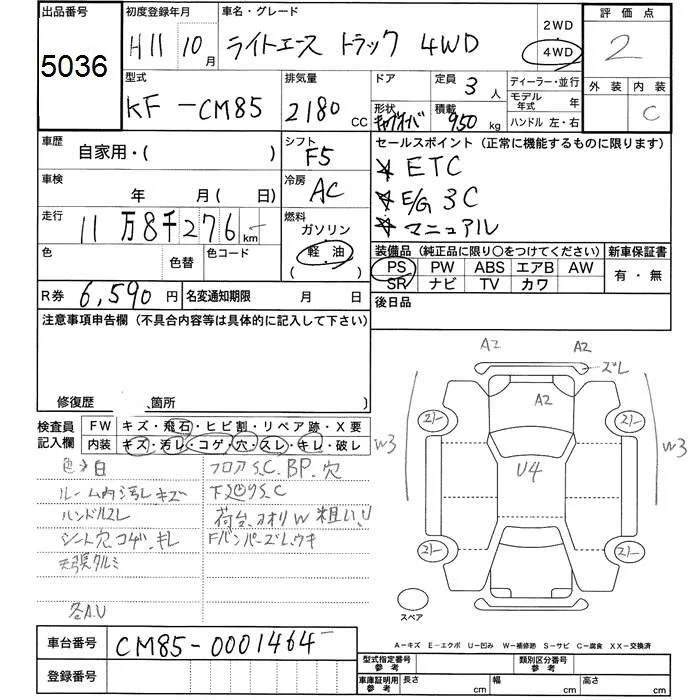 出品番号
5036
初度登録年月
H11 10月
車名・グレード
ライトエース トラック 4WD
2WD
4WD
評価点
2
外装 内装
C
型式
KF-CM85
排気量
2180 CC
ドア
定員 3人
形状
積載
950 kg
ディーラー・並行
モデル年式 年
ハンドル 左・右
車歴
自家用・( )
シフト
F5
車検
年 月(日)
冷房
AC
走行
11万8千276km
燃料
ガソリン
軽油
( )
色
色替
色コード
R券 6,590円
名変通知期限 月 日
セールスポイント(正常に機能するものに限ります)
☆ETC
☆E/G 3C
☆マニュアル
装備品(純正品に限り○をつけてください)
PS PW ABS エアB AW
SR ナビ TV カワ
新車保証書
有・無
後日品
注意事項申告欄(不具合内容等は具体的に記入して下さい)
修復歴 、箇所( )
検査員記入欄
FW キズ・飛石・ヒビ割・リペア跡・X要
内装 キズ・汚レ・コゲ・穴・スレ・キレ・破レ
色 白
ルーム内汚レキズ
ハンドルスレ
シート穴、コゲ、キレ
天張タルミ
各A.U
フロアS.C.BP.穴
下廻りS.C
荷台、アオリW 粗い、U
FバンパーズレウキA2 A2
ズレ
A2
U4
W3
W3
スペア
A-キズ E-エクボ U-凹み W-補修跡 S-サビ C-腐食 XX-交換済
車台番号 CM85-0001464
登録番号
型式指定番号 参考
類別区分番号 参考
車庫証明用 参考
長さ cm
幅 cm
高さ cm